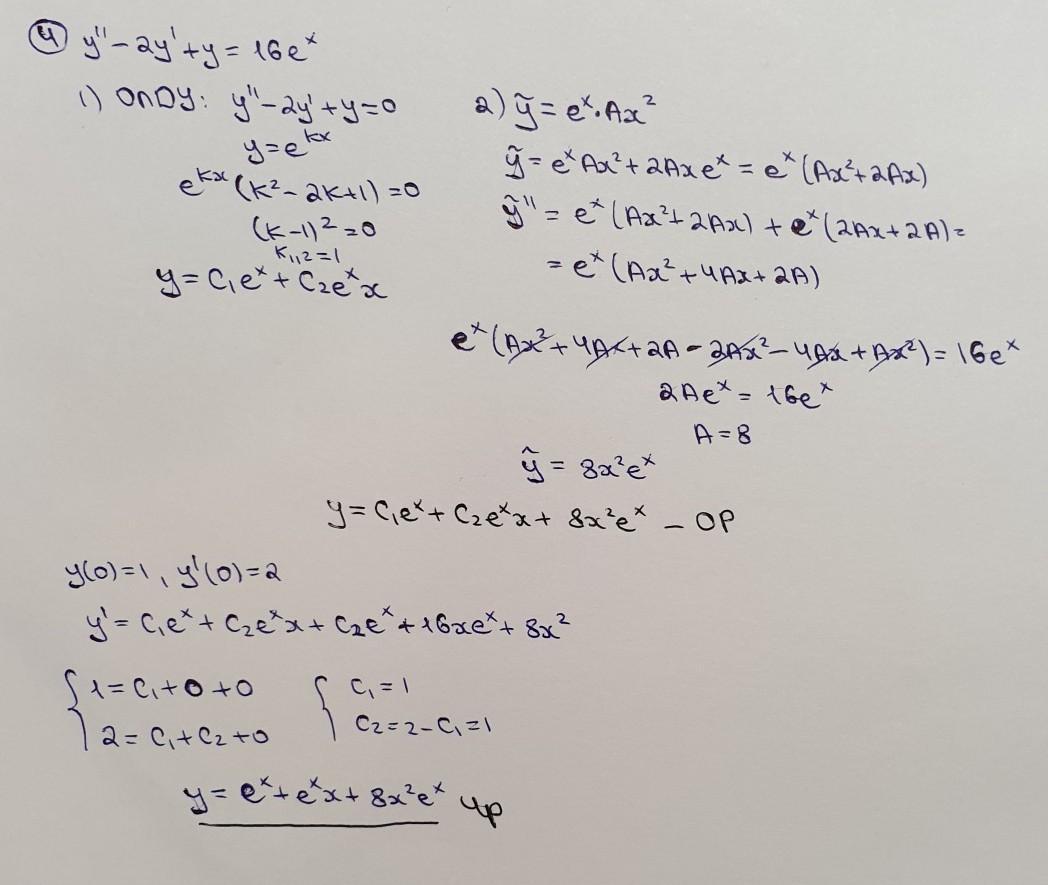 ④ y'' - 2y' + y = 16eˣ
1) ОЛДУ: y'' - 2y' + y = 0
y = eᵏˣ
eᵏˣ (k² - 2k + 1) = 0
(k - 1)² = 0
k₁,₂ = 1
y = C₁eˣ + C₂eˣx
2) ỹ = eˣ · Ax²
ỹ = eˣAx² + 2Axeˣ = eˣ (Ax² + 2Ax)
ỹ'' = eˣ (Ax² + 2Ax) + eˣ (2Ax + 2A) =
= eˣ (Ax² + 4Ax + 2A)
eˣ (Ax² + 4Ax + 2A - 2Ax² - 4Ax + Ax²) = 16eˣ
2Aeˣ = 16eˣ
A = 8
ỹ = 8x²eˣ
y = C₁eˣ + C₂eˣx + 8x²eˣ - ОР
y(0) = 1, y'(0) = 2
y' = C₁eˣ + C₂eˣx + C₂eˣ + 16xeˣ + 8x²
{ 1 = C₁ + 0 + 0 { C₁ = 1
2 = C₁ + C₂ + 0 C₂ = 2 - C₁ = 1
y = eˣ + eˣx + 8x²eˣ ЧР